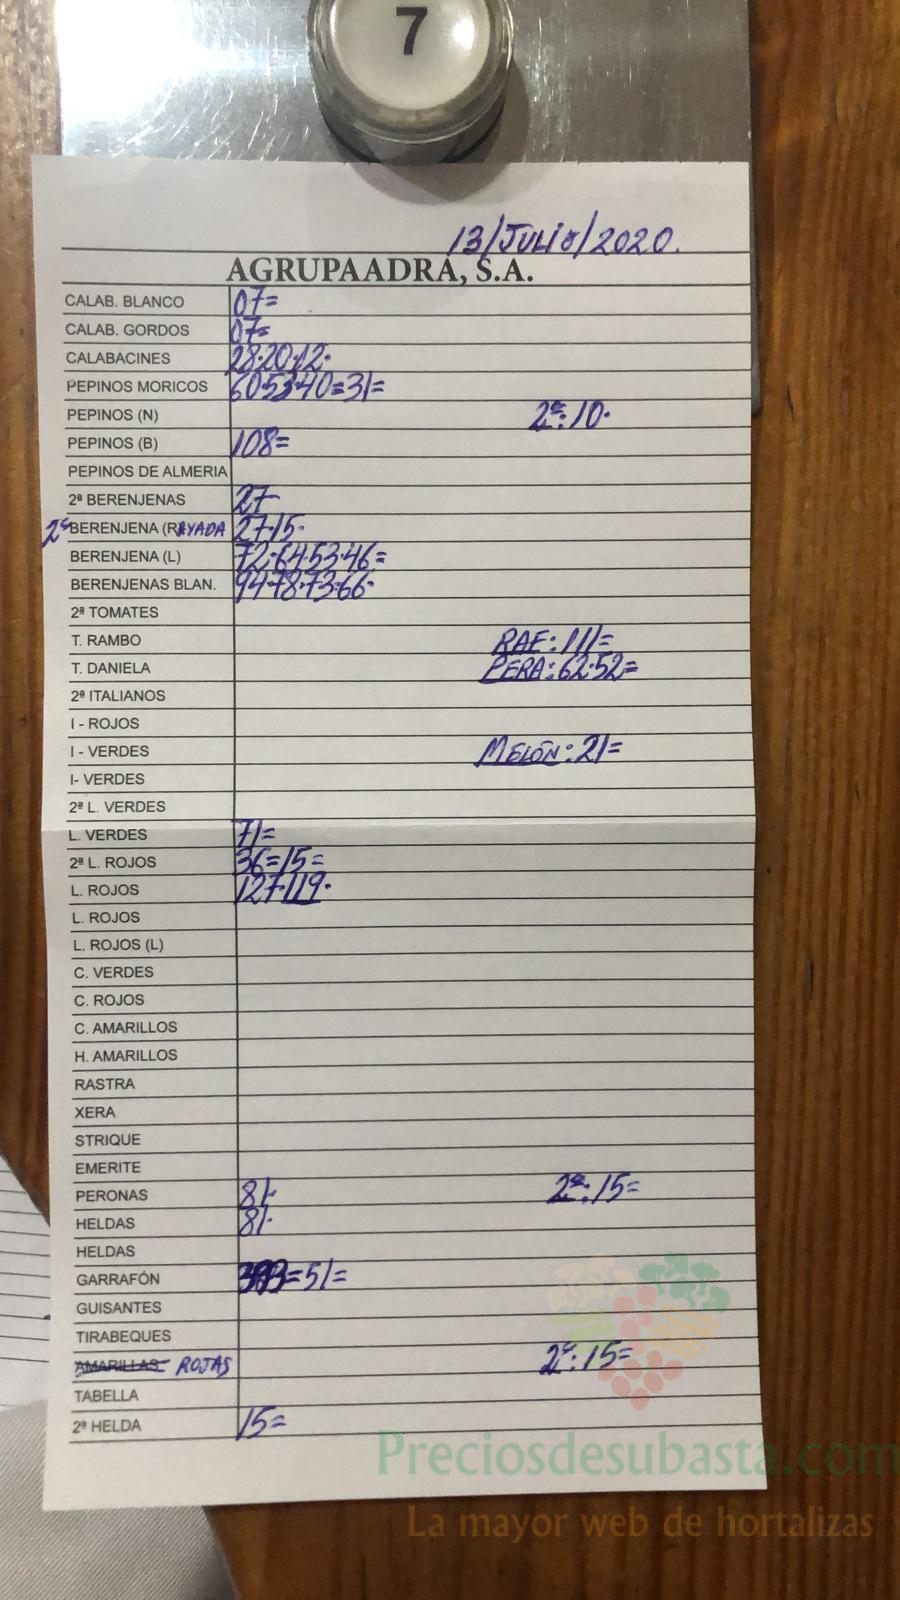 7
13/JULIO/2020.
AGRUPAADRA, S.A.
CALAB. BLANCO 07=
CALAB. GORDOS 07=
CALABACINES 28·20·12·
PEPINOS MORICOS 60·53·40=31=
PEPINOS (N) 2ª:10·
PEPINOS (B) 108=
PEPINOS DE ALMERIA
2ª BERENJENAS 27-
2ª BERENJENA (RAYADA 27·15·
BERENJENA (L) 72·64·53·46=
BERENJENAS BLAN. 94·78·73·66·
2ª TOMATES
T. RAMBO RAF: 111=
T. DANIELA PERA: 62·52=
2ª ITALIANOS
I - ROJOS
I - VERDES MELÓN: 21=
I- VERDES
2ª L. VERDES
L. VERDES 71=
2ª L. ROJOS 36=15=
L. ROJOS 127·119·
L. ROJOS
L. ROJOS (L)
C. VERDES
C. ROJOS
C. AMARILLOS
H. AMARILLOS
RASTRA
XERA
STRIQUE
EMERITE
PERONAS 81· 2ª:15=
HELDAS 81·
HELDAS
GARRAFÓN =51=
GUISANTES
TIRABEQUES
AMARILLAS ROJAS 2ª:15=
TABELLA
2ª HELDA 15=
Preciosdesubasta.com
La mayor web de hortalizas